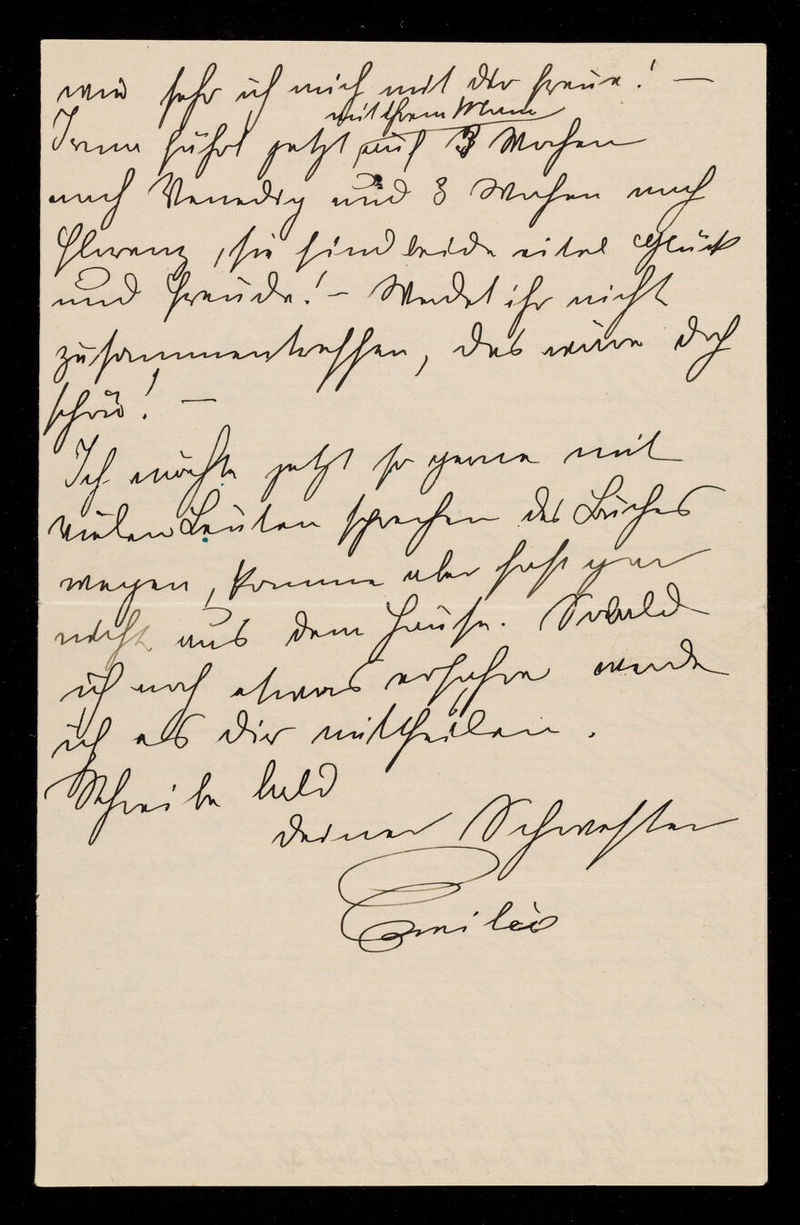 wie sehr ich mich mit dir freue! —
mit ihrem Mann
Irma fährt jetzt auf 3 Wochen
nach Venedig und 3 Wochen nach
Florenz, sie sind beide eitel Glück
und Freude! — Werdet ihr nicht
zusammentreffen, das wäre doch
schön! —
Ich möchte jetzt so gerne mit
vielen Leuten sprechen des Buches
wegen, komme aber fast gar
nicht aus dem Hause. Sobald
ich noch etwas erfahre werde
ich es dir mittheilen.
Schreibe bald
deiner Schwester
Emilie